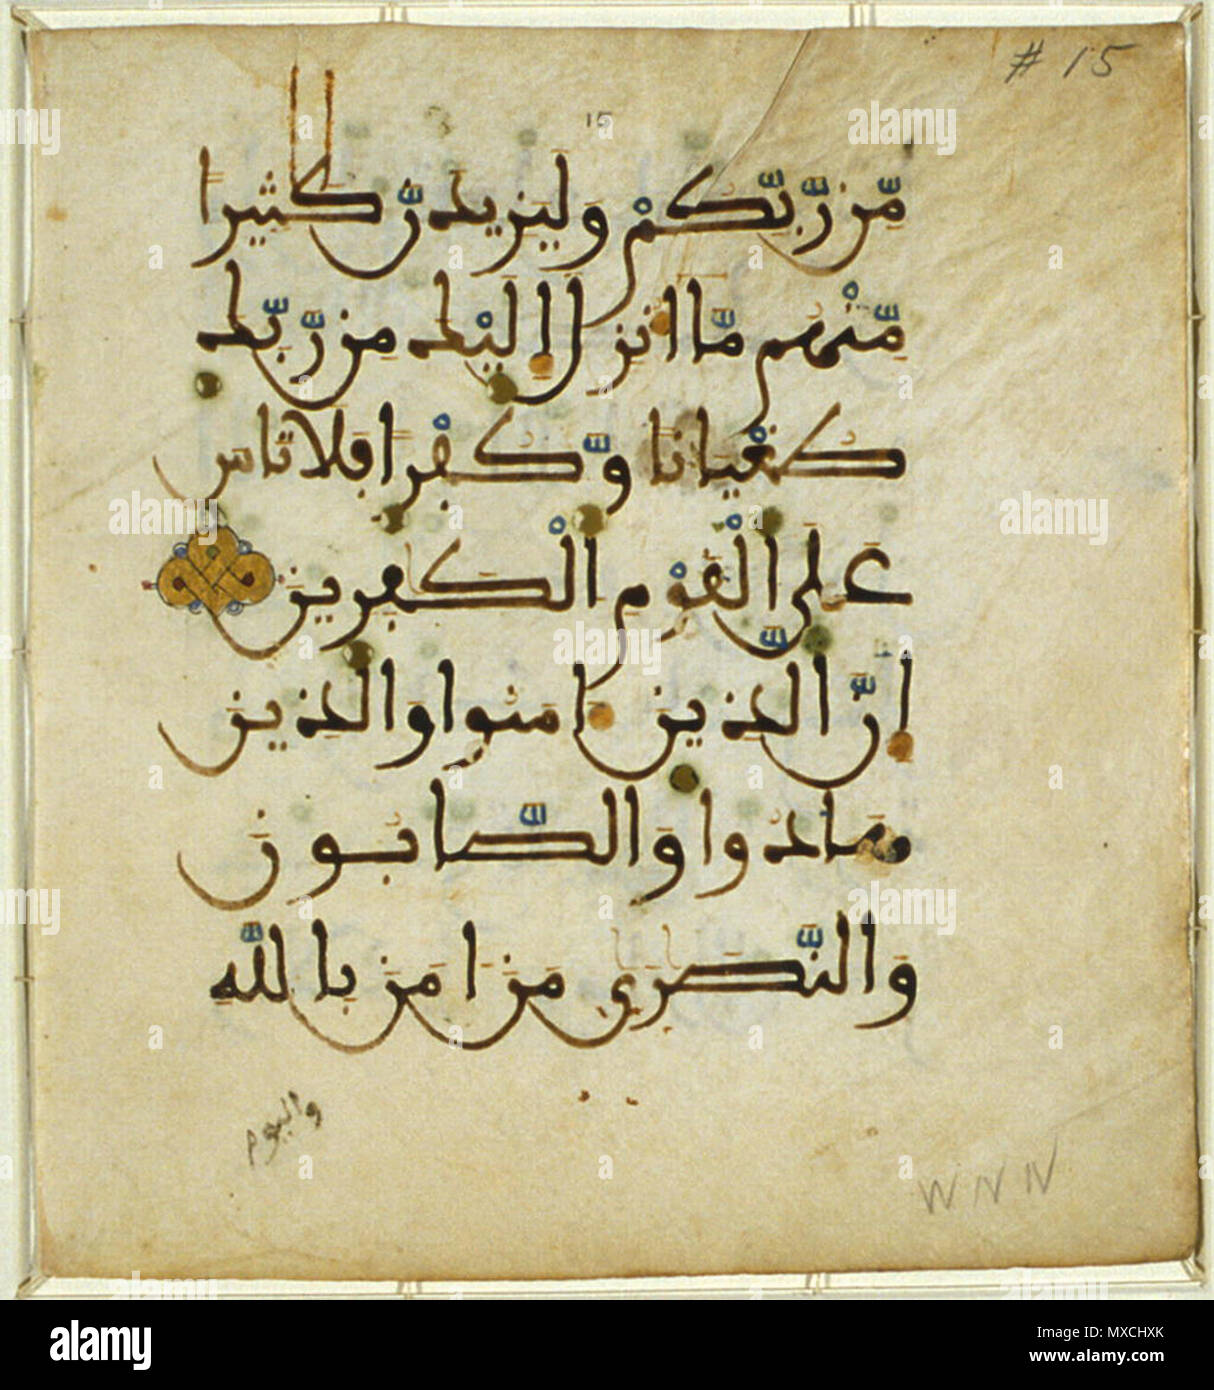 # 15
15
مِّن رَّبِّكُمْ وَلَيَزِيدَنَّ كَثِيرًا
مِّنْهُم مَّا أُنزِلَ إِلَيْكَ مِن رَّبِّكَ
طُغْيَانًا وَّكُفْرًا فَلَا تَأْسَ
عَلَى الْقَوْمِ الْكَٰفِرِينَ
إِنَّ الَّذِينَ ءَامَنُوا وَالَّذِينَ
هَادُوا وَالصَّابُونَ
وَالنَّصَٰرَىٰ مَنَ امَنَ بِاللَّهِ
واليوم
W N N
alamy
Image ID: MXCHXK
www.alamy.com